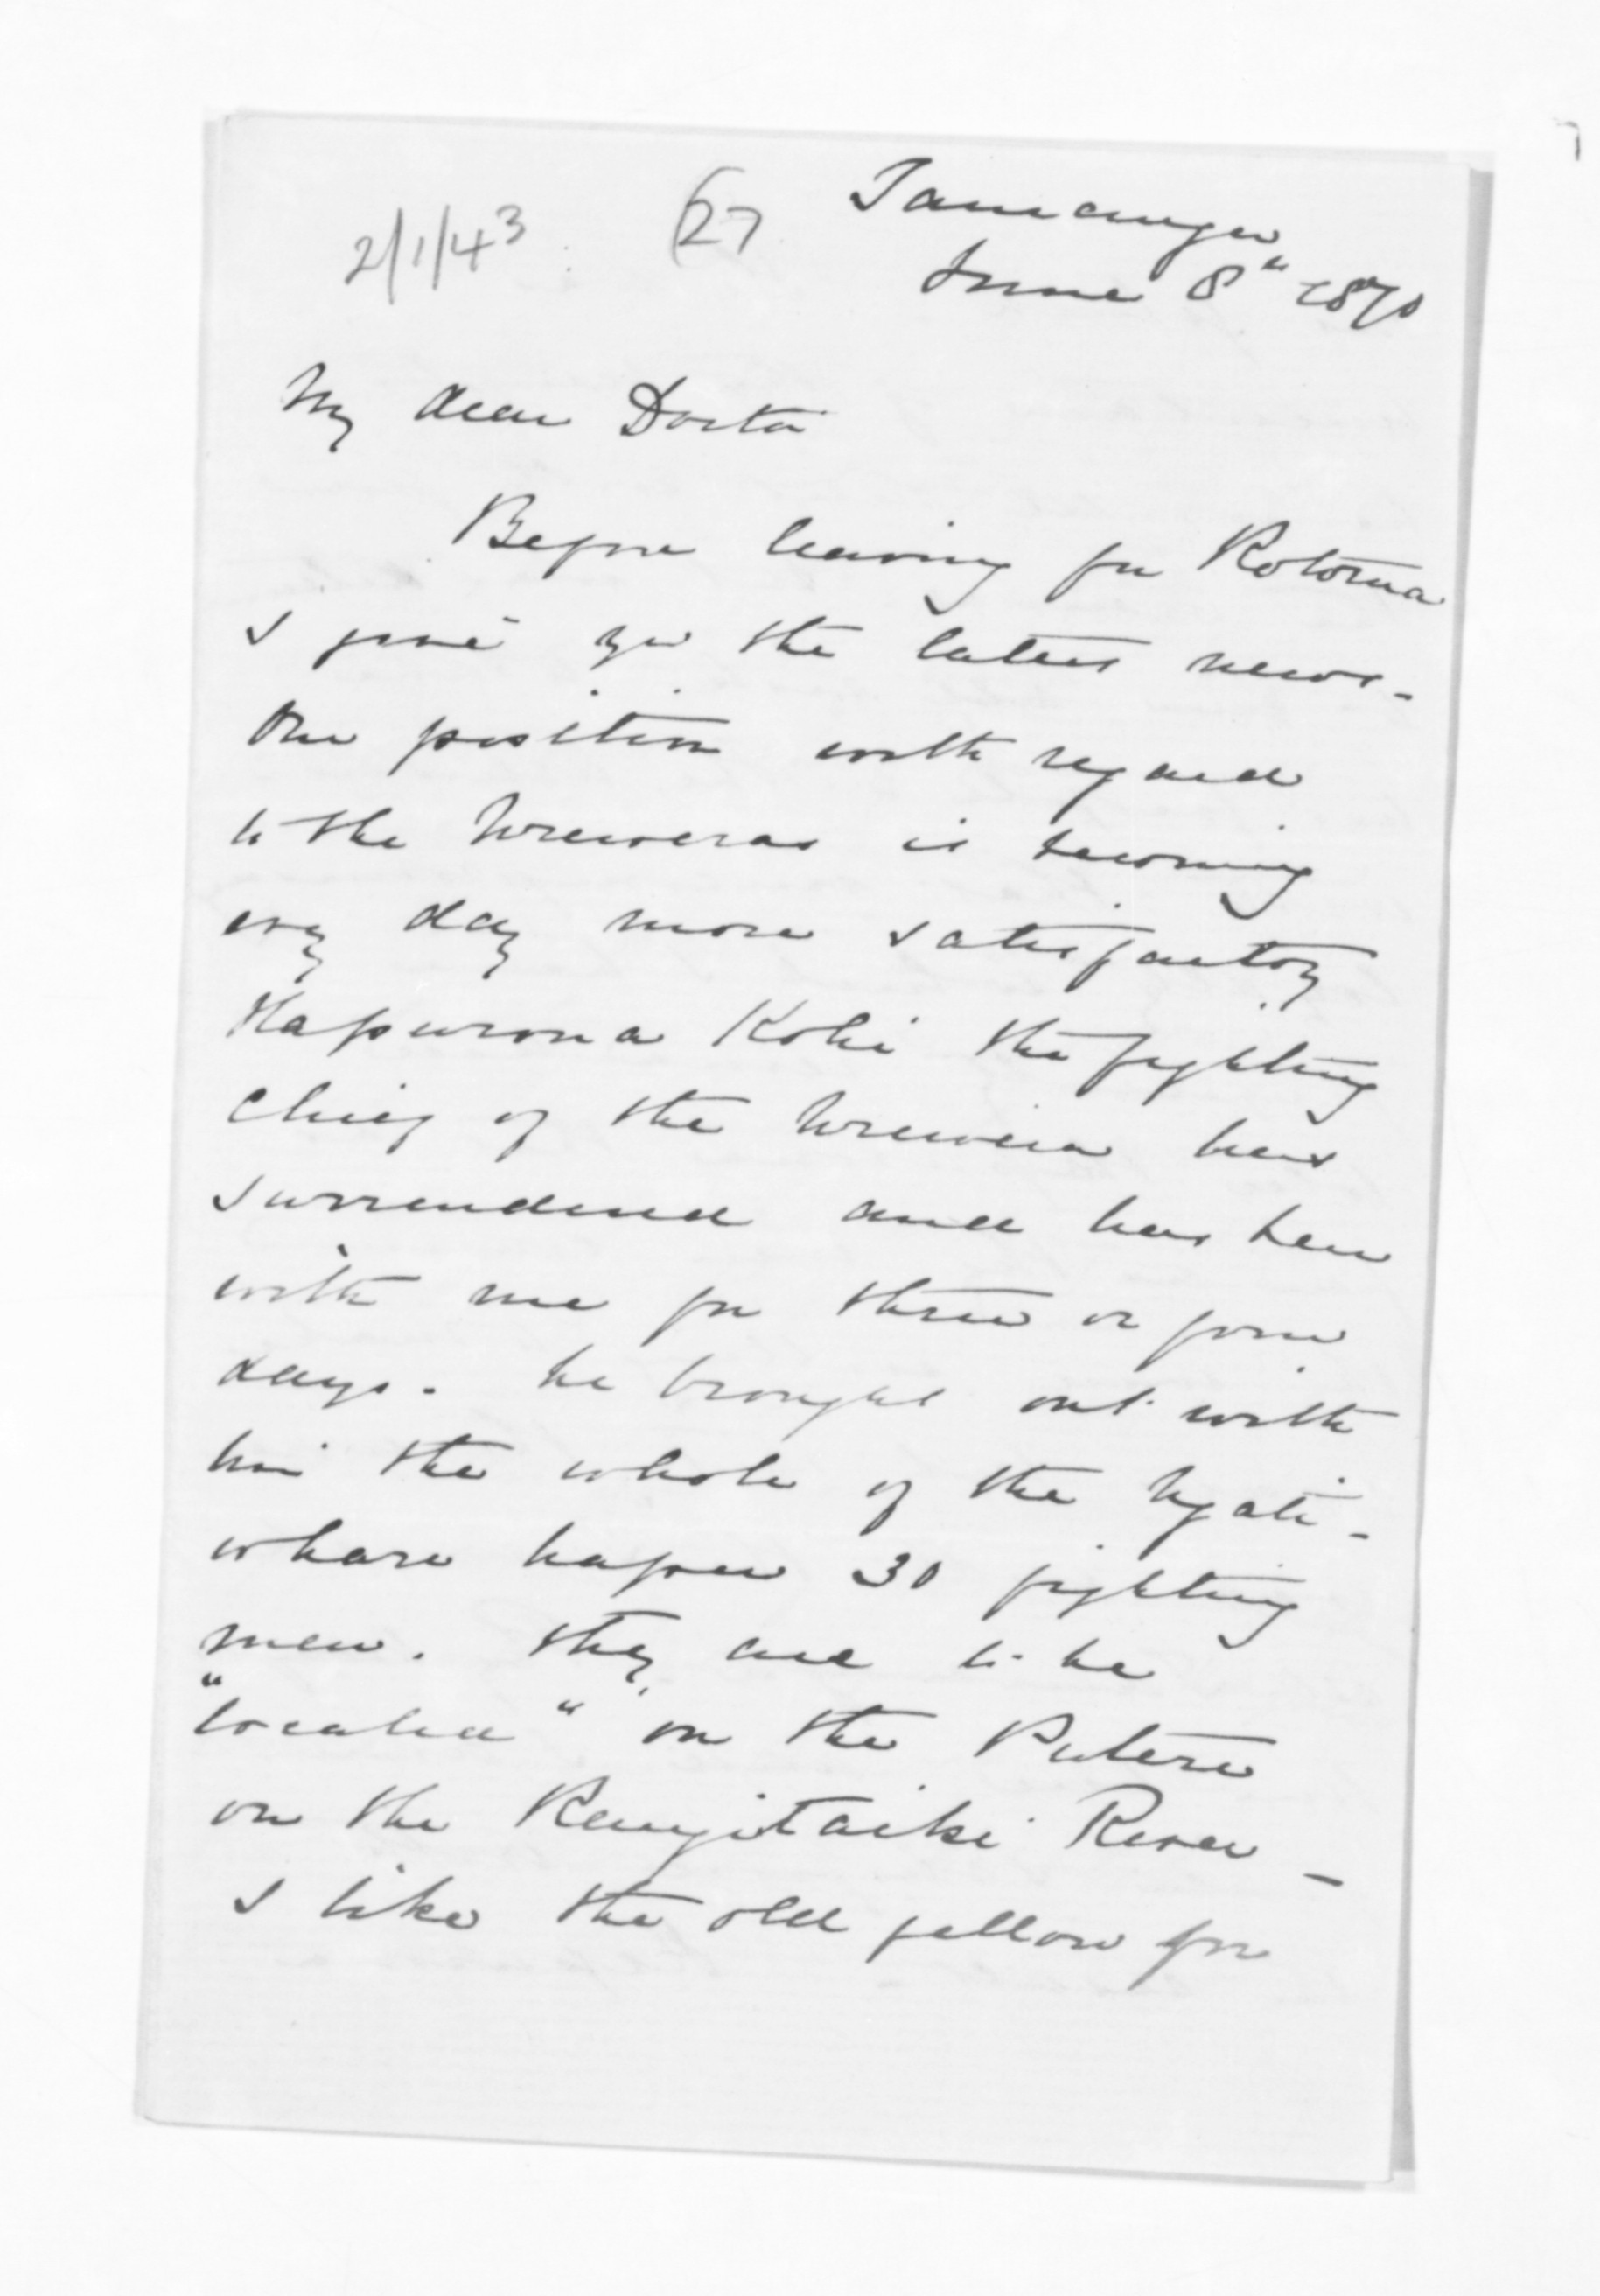 2/1/43 (27 Tauranga
June 8th 1870
My dear Doctor
Before leaving for Rotorua
I give you the latest news -
Our position with regard
to the Urewera is becoming
every day more satisfactory
Hapurona Kohi the fighting
chief of the Urewera has
surrendered and has been
with me for three or four
days. he brought out with
him the whole of the Ngati -
whare hapu 30 fighting
men. They are to be
"located" on the Putere
on the Rangitaiki River -
I like the old fellow for